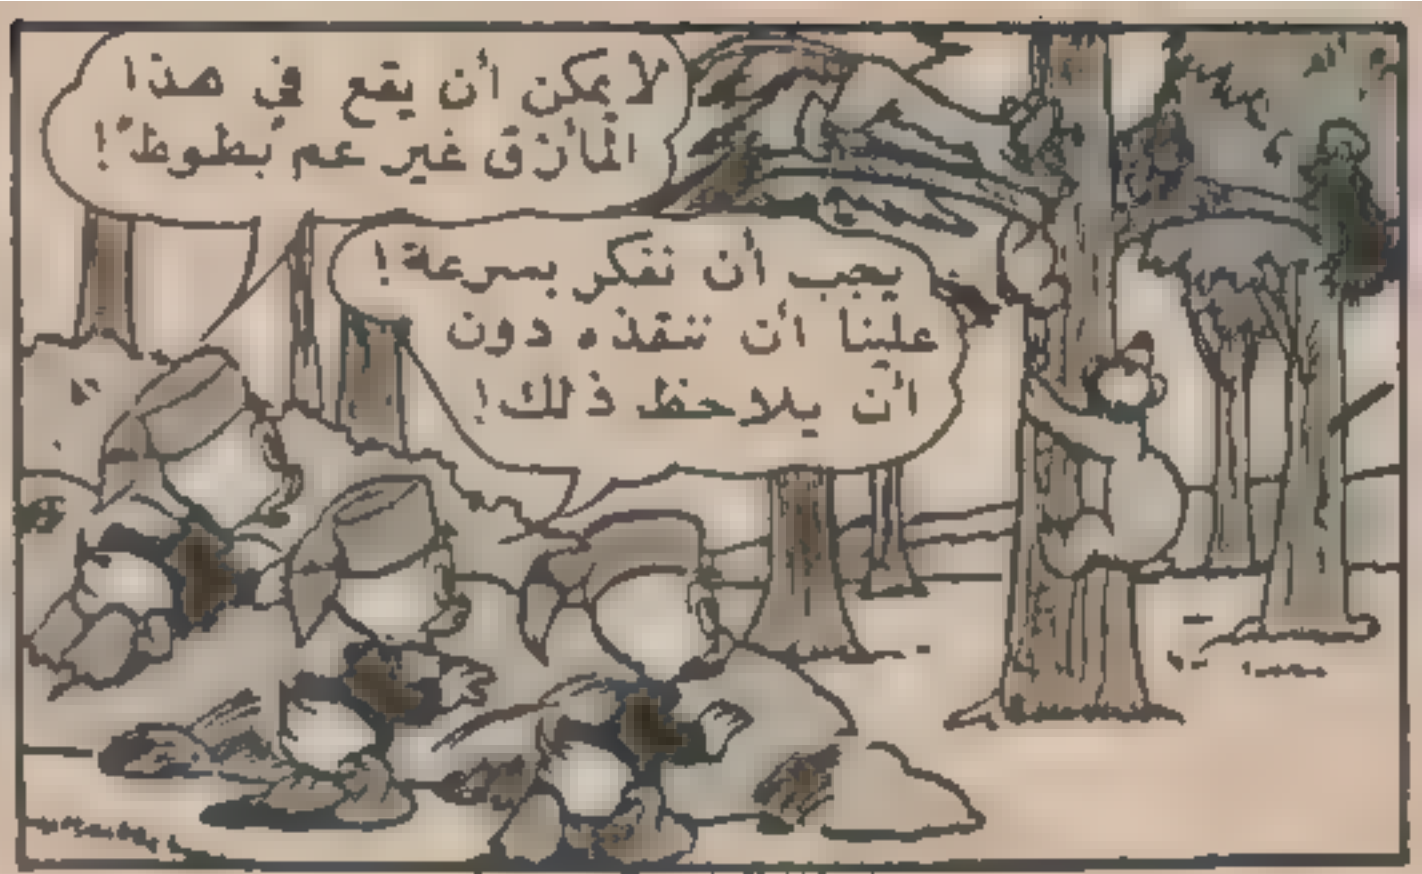 لا يمكن أن يقع في هذا
المأزق غير عم بطوط!
يجب أن نفكر بسرعة!
علينا أن ننقذه دون
أن يلاحظ ذلك!